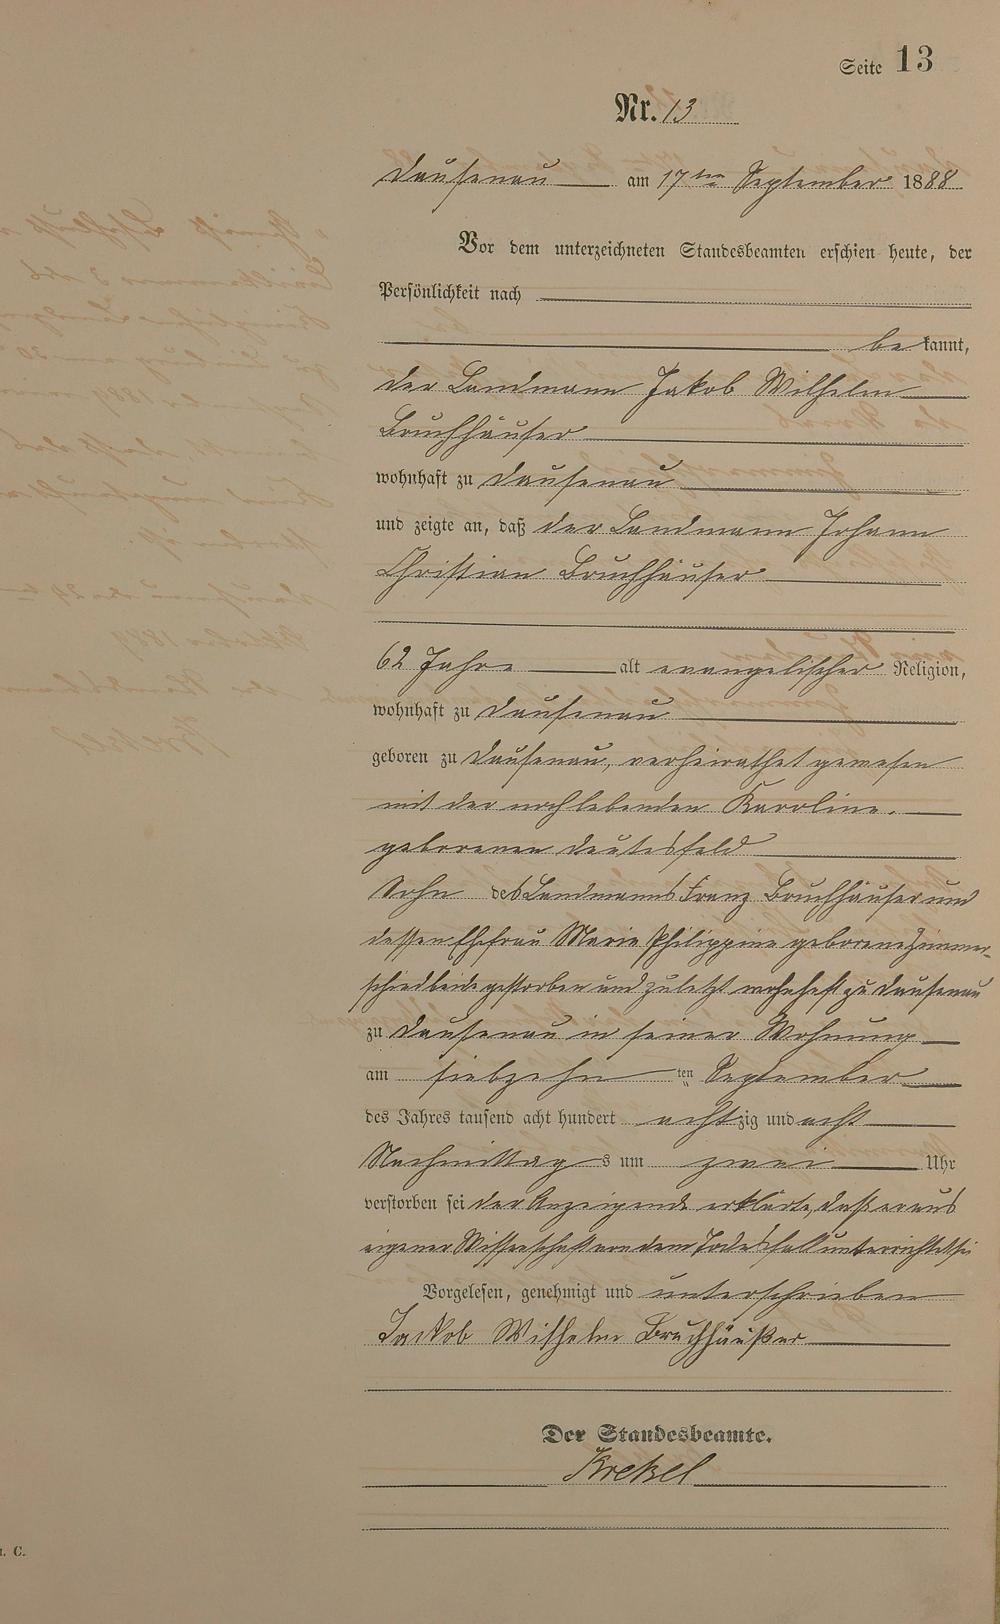 Seite 13
Nr. 13
Dausenau am 17ten September 1888
Vor dem unterzeichneten Standesbeamten erschien heute, der
Persönlichkeit nach
bekannt,
der Landmann Jakob Wilhelm
Bruchhäuser
wohnhaft zu Dausenau
und zeigte an, daß der Landmann Johann
Christian Bruchhäuser
62 Jahre alt evangelischer Religion,
wohnhaft zu Dausenau
geboren zu Dausenau, verheirathet gewesen
mit der noch lebenden Karoline,
geborenen Deutesfeld
Sohn des Landmanns Franz Bruchhäuser und
dessen Ehefrau Marie Philippine geborene Zimmer-
schied beide gestorben und zuletzt wohnhaft zu Dausenau
zu Dausenau in seiner Wohnung
am siebzehn ten September
des Jahres tausend acht hundert achtzig und acht
Nachmittags um zwei Uhr
verstorben sei der Anzeigende erklärte, daß er aus
eigener Wissenschaft von dem Todesfall unterrichtet sei
Vorgelesen, genehmigt und unterschrieben
Jackob Wilhelm Bruchhäußer
Der Standesbeamte.
Krekel
. C.